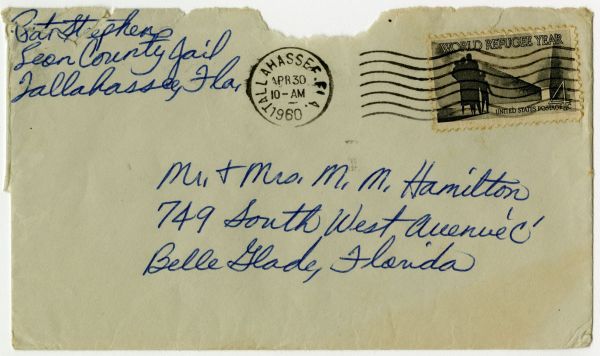 Pat Stephens
Leon County Jail
Tallahassee, Fla.
TALLAHASSEE, FLA.
APR 30
10-AM
1960
WORLD REFUGEE YEAR
4¢
UNITED STATES POSTAGE
Mr. + Mrs. M. M. Hamilton
749 South West Avenue "C"
Belle Glade, Florida